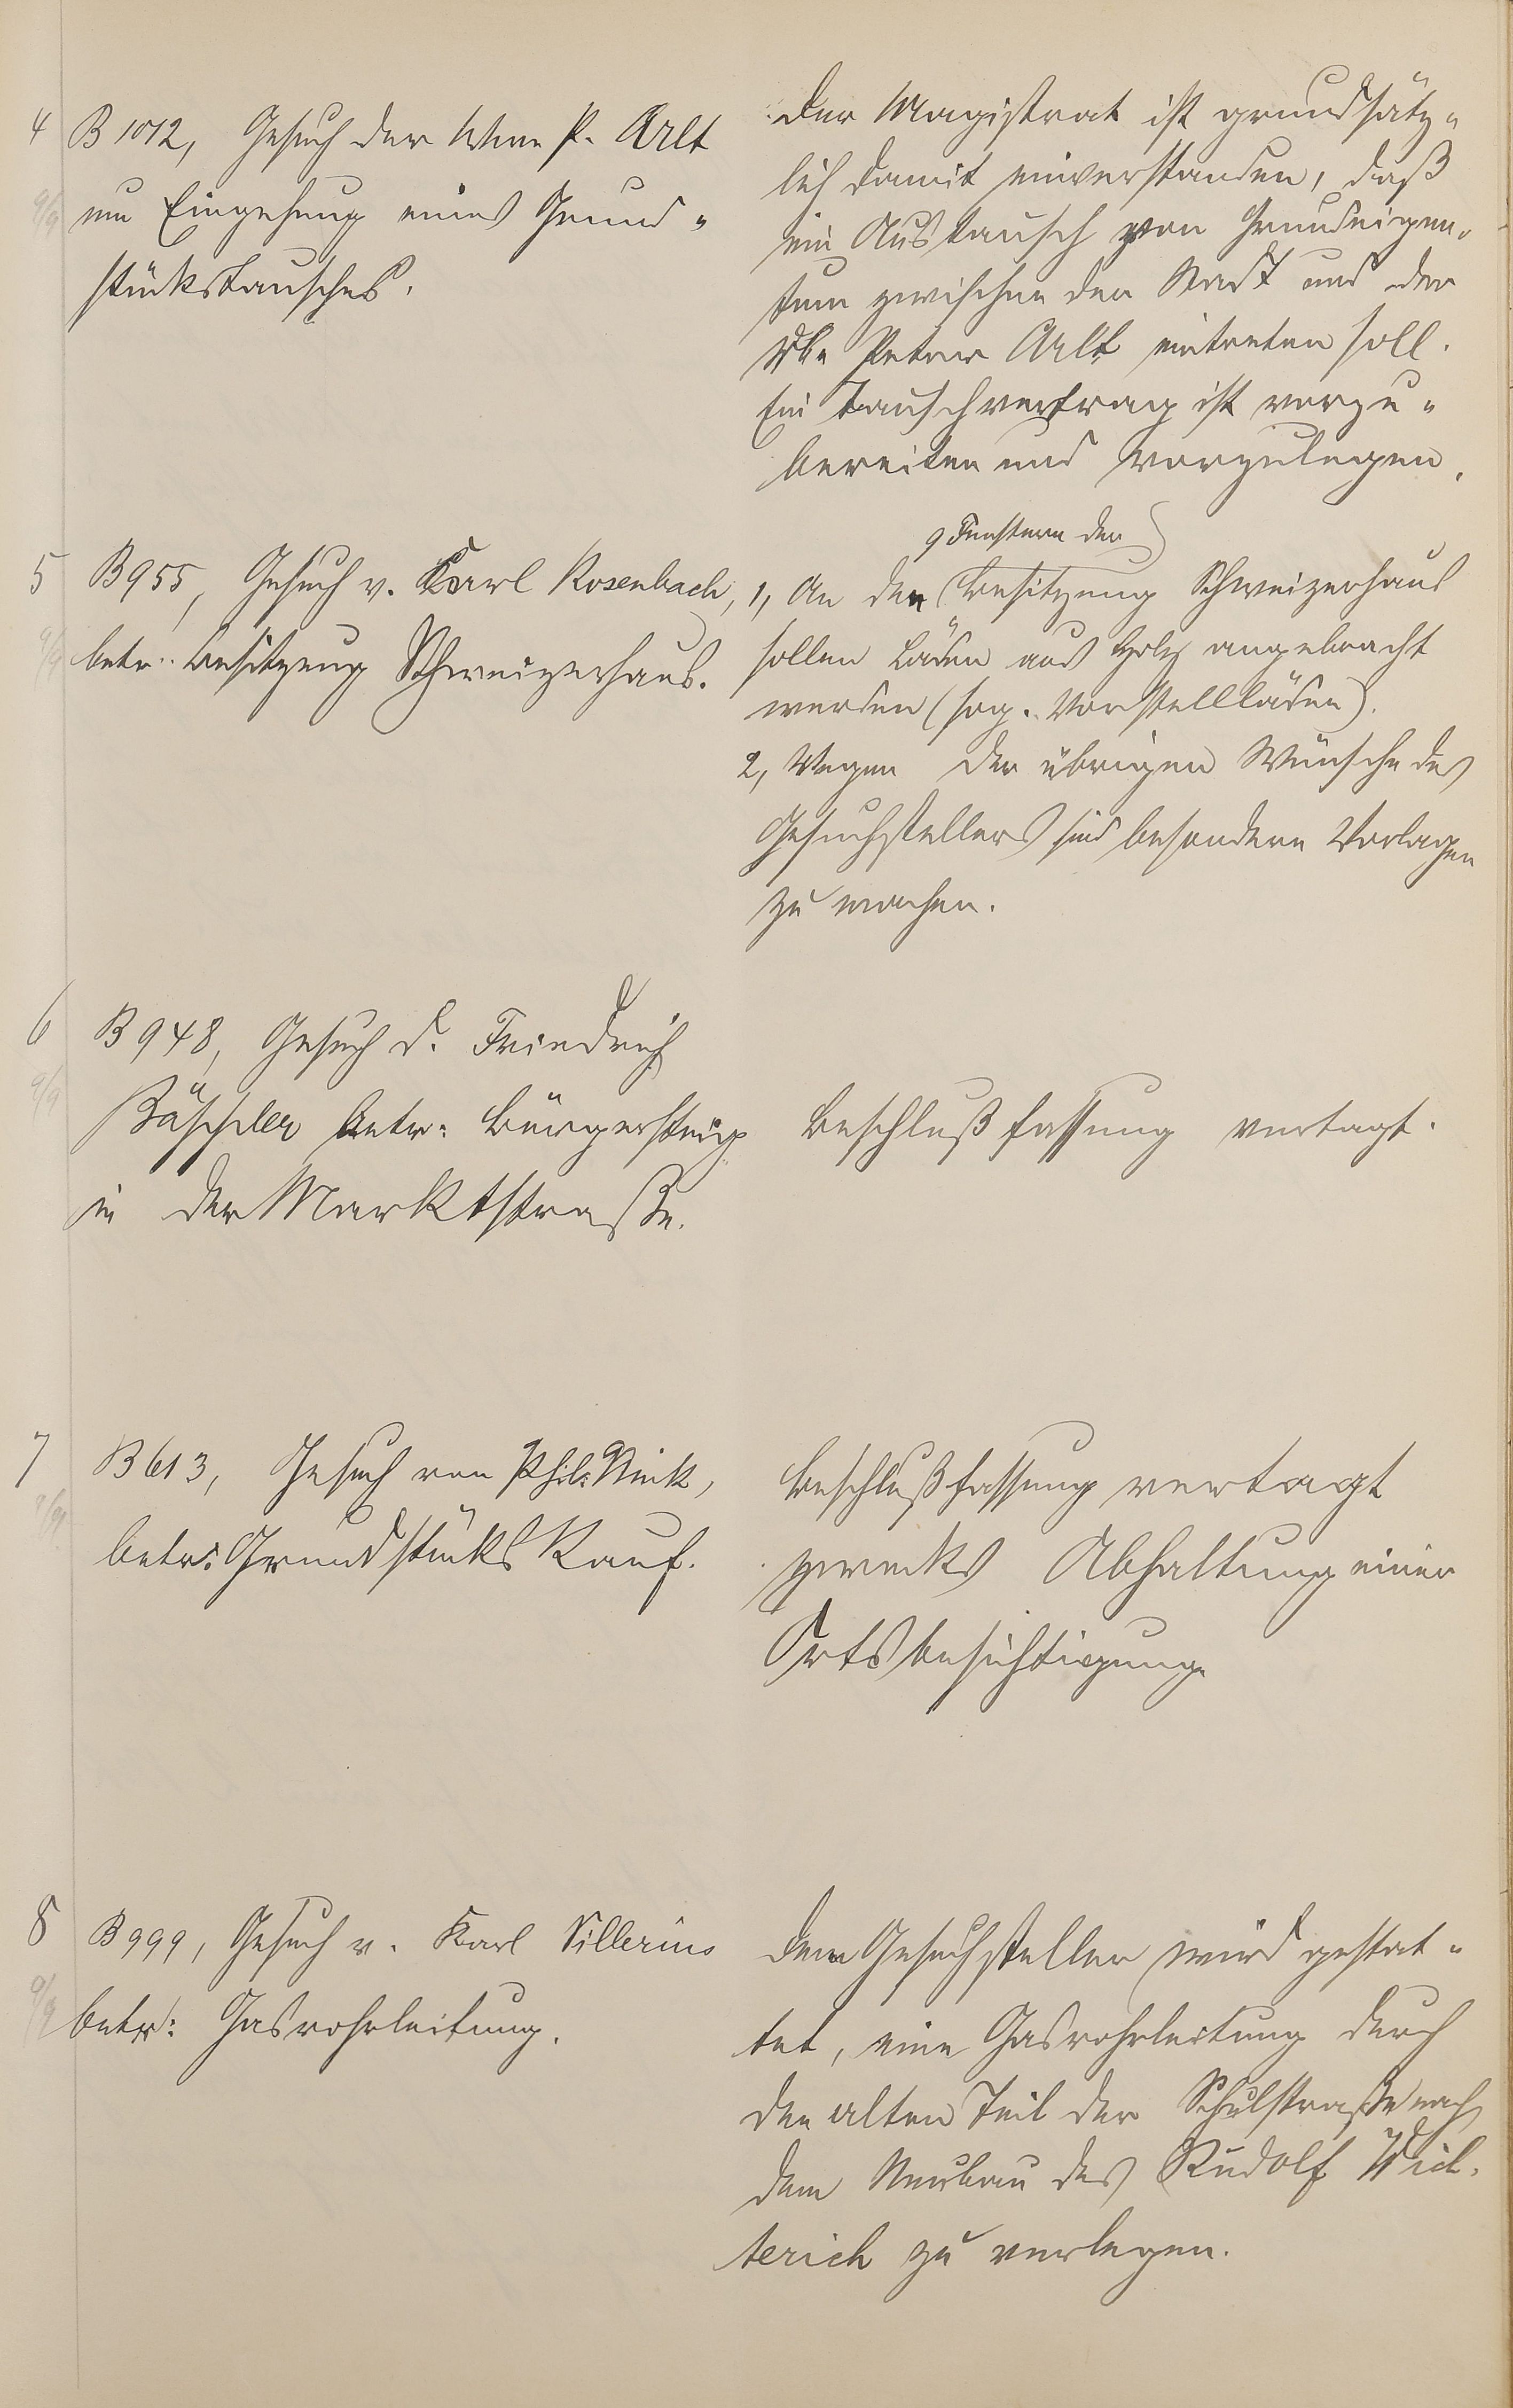 4 B 1012, Gesuch der Wwe P. Arlt
9/9 um Eingehung eines Grund-
stückstausches.
Der Magistrat ist grundsätz-
lich damit einverstanden, daß
ein Austausch von Grundeigen-
tum zwischen der Stadt und der
Peter Arlt eintreten soll.
Ein Tauschvertrag ist vorzu-
bereiten und vorzulegen.
5 B 955, Gesuch v. Karl Rosenbach,
9/9 betr. Besitzung Schweizerhaus.
Fenstern der
1, An den Besitzung Schweizerhaus
sollen Läden aus Holz angebracht
werden (sog. Vorstellläden).
2, Wegen der übrigen Wünsche des
Gesuchstellers sind besondere Vorlagen
zu machen.
6 B 948, Gesuch d. Friedrich
9/9 betr: Bürgersteig
in der Marktstraße.
Beschlußfassung vertagt.
7 B 613, Gesuch von Phil. Nink,
9/9 betr: Grundstücks Kauf.
Beschlußfassung vertagt
zwecks Abhaltung einer
Ortsbesichtigung.
8 B 999, Gesuch v. Karl Sillerius
9/9 betr: Gasrohrleitung.
Dem Gesuchsteller wird gestat-
tet, eine Gasrohrleitung durch
den alten Teil der Schulstraße nach
dem Neubau des Rudolf Wich-
terich zu verlegen.